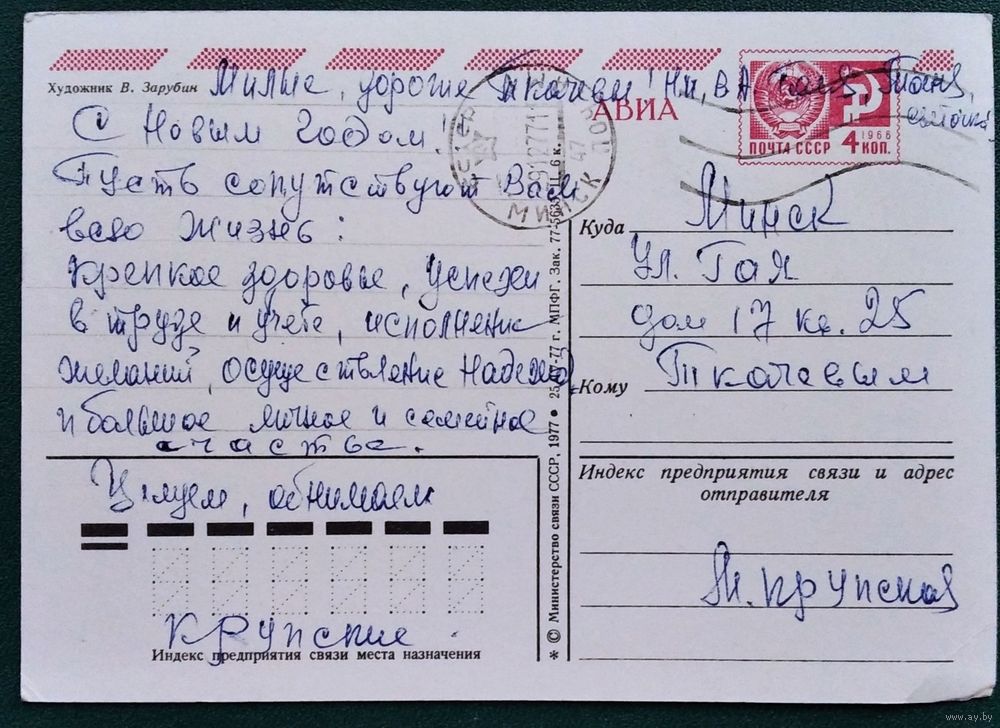 Художник В. Зарубин
Милые, дорогие Ткачевы! Н.И., В.А., Таня,
светочка!
АВИА
1966
ПОЧТА СССР 4 КОП.
МИНСК
С Новым Годом.
Пусть сопутствуют Вам
всю жизнь:
крепкое здоровье, успехи
в труде и учебе, исполнение
желаний, осуществление надежд,
и большое личное и семейное
счастье.
Целуем, обнимаем
Крупские
Индекс предприятия связи места назначения
* © Министерство связи СССР, 1977 • 25. IV-77 г. МПФГ. Зак. 77-5639. Ц. 6 к.
Куда Минск
ул. Гая
дом 17 кв. 25
Кому Ткачевым
Индекс предприятия связи и адрес
отправителя
Крупская
www.ay.by